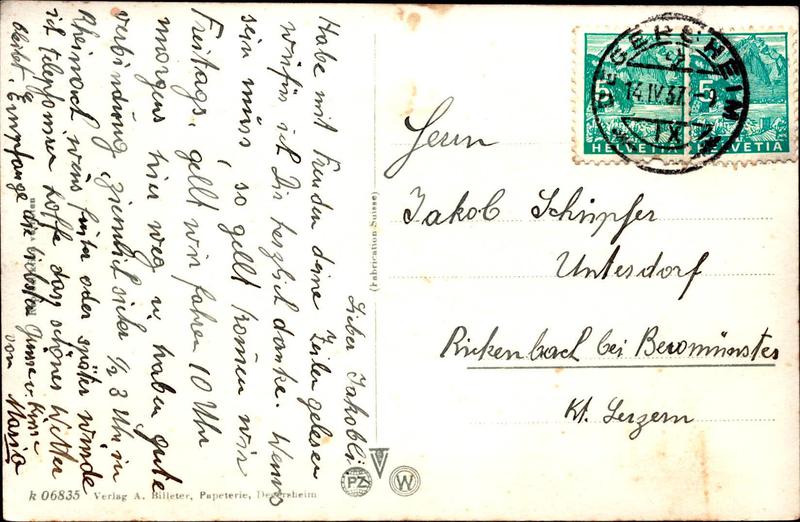 Lieber Jakobli.
Habe mit Freuden deine Zeilen gelesen
wofür ich Dir herzlich danke. Wenns
sein muss, so gellt komen wir
Freitags, gellt wir fahren 10 Uhr
morgens hier weg u. haben gute
verbindung, ziemlich sicher ½ 3 Uhr in
Rheinach, wens früher oder später würde
ich telefonieren. Hoffe dass schönes Wetter
bleibt. Empfange die liebsten Grüsse u. Küsse
von Maria
Herrn
Jakob Schüpfer
Untersdorf
Rickenbach bei Beromünster
Kt. Luzern
DEGERSHEIM
14.IV.37.-9
IX
HELVETIA
HELVETIA
5
5
(Fabrication Suisse)
PZ
W
k 06835 Verlag A. Billeter, Papeterie, Degersheim